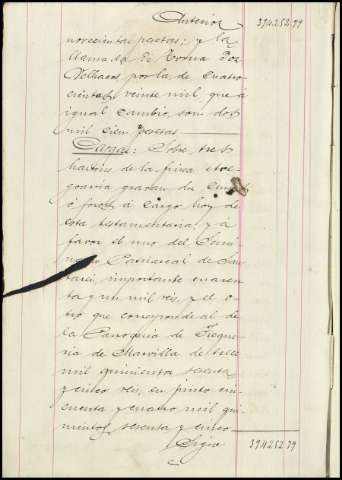 Anterior 394.252.79
novecientas pesetas; y la
llamada de Torna dos
Velhacos, por la de cuatro
cientas veinte mil, que á
igual cambio, son dos
mil cien pesetas
Cargas: Sobre tres
de la finca
gravan dos
ó foros á cargo hoy de
esta testamentaría y á
favor el uno del Semi
nario Patriarcal de San
tarém, importante cuaren
ta y un mil reis, y el o
tro que corresponde al de
la Parroquia de Fregue
sia de Marvilla de trece
mil quinientos sesenta
y cinco reis, en junto cin
cuenta y cuatro mil qui
nientos sesenta y cinco
Sigue 394.252.79